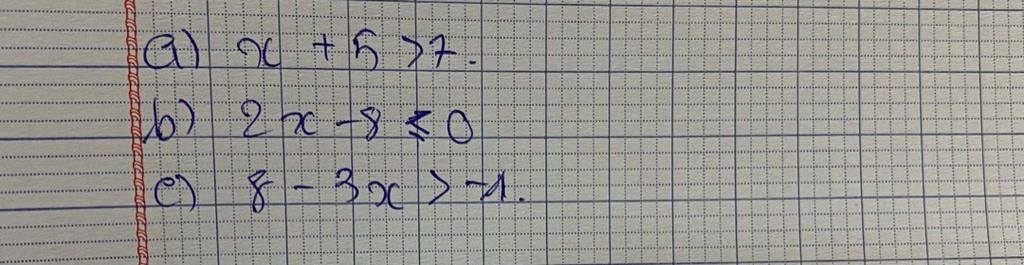 a) x + 5 > 7.
b) 2x - 8 ≤ 0
c) 8 - 3x > -1.